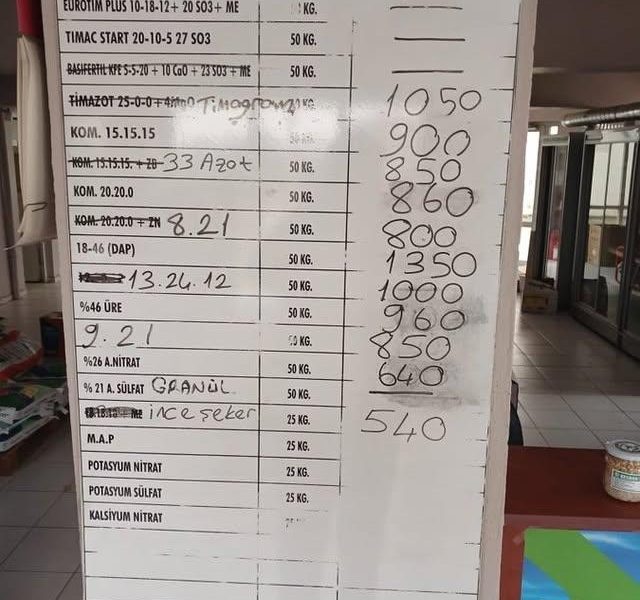 EUROTIM PLUS 10-18-12+ 20 SO3+ ME KG. —
TIMAC START 20-10-5 27 SO3 50 KG. —
BASIFERTIL KFE 5-5-20 + 10 CaO + 23 SO3 + ME 50 KG. —
TİMAZOT 25-0-0 + 4MgO Timogranz KG. 1050
KOM. 15.15.15 50 KG. 900
KOM. 15.15.15. + ZB 33 Azot 50 KG. 850
KOM. 20.20.0 50 KG. 860
KOM. 20.20.0 + ZN 8.21 50 KG. 800
18-46 (DAP) 50 KG. 1350
13.24.12 50 KG. 1000
%46 ÜRE 50 KG. 960
9.21 50 KG. 850
%26 A.NİTRAT 50 KG. 640
% 21 A. SÜLFAT GRANÜL 50 KG. —
ince şeker 25 KG. 540
M.A.P 25 KG.
POTASYUM NİTRAT 25 KG.
POTASYUM SÜLFAT 25 KG.
KALSİYUM NİTRAT